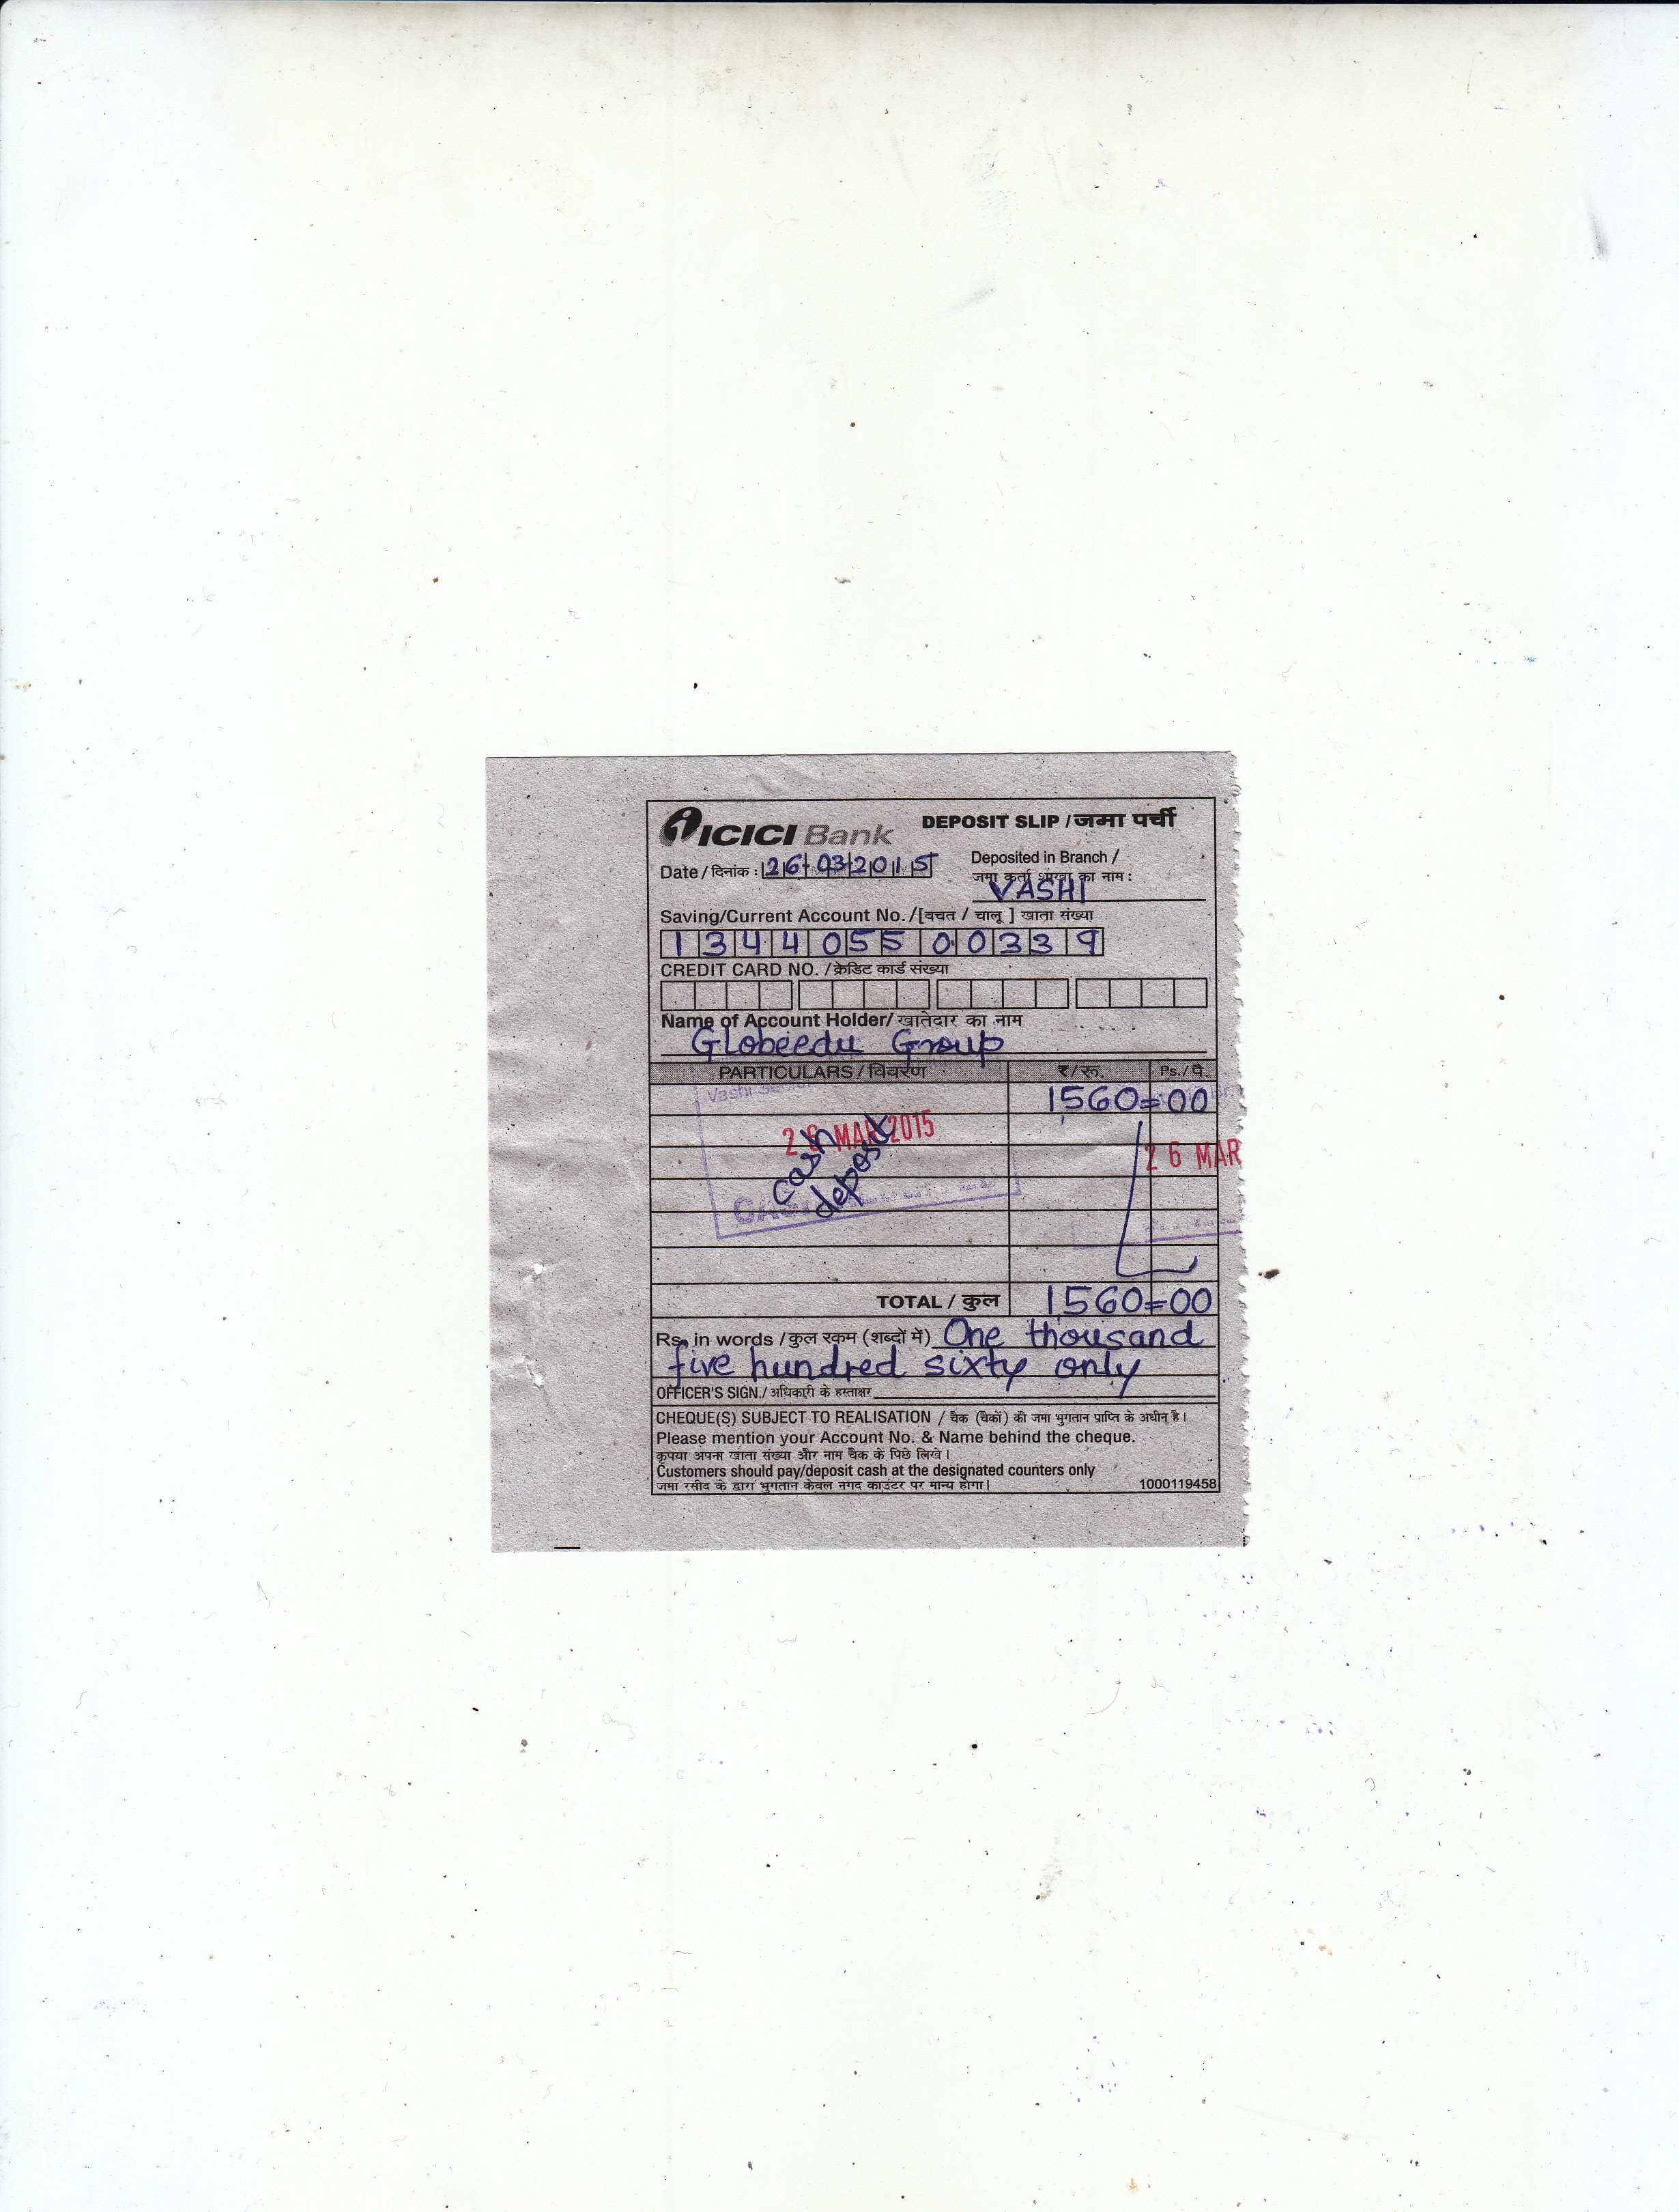 ICICI Bank DEPOSIT SLIP / जमा पर्ची
Date / दिनांक : 26-03-2015 Deposited in Branch /
जमा कर्ता शाखा का नाम :
VASHI
Saving/Current Account No. /[बचत / चालू ] खाता संख्या
134405500339
CREDIT CARD NO. / क्रेडिट कार्ड संख्या
Name of Account Holder/ खातेदार का नाम
Globeedu Group
PARTICULARS / विवरण ₹/रू. Ps./पै.
Vashi
1560=00
26 MAR 2015
26 MAR
cash
deposit
TOTAL / कुल 1560=00
Rs. in words / कुल रकम (शब्दों में) One thousand
five hundred sixty only
OFFICER'S SIGN./ अधिकारी के हस्ताक्षर
CHEQUE(S) SUBJECT TO REALISATION / चैक (चैकों) की जमा भुगतान प्राप्ति के अधीन है।
Please mention your Account No. & Name behind the cheque.
कृपया अपना खाता संख्या और नाम चैक के पिछे लिखे।
Customers should pay/deposit cash at the designated counters only
जमा रसीद के द्वारा भुगतान केवल नगद काउंटर पर मान्य होगा। 1000119458